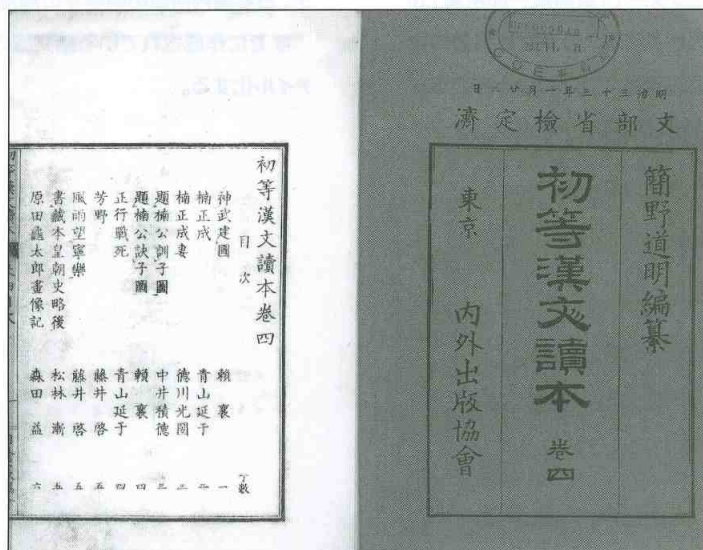 明治三十三年一月廿六日
文部省檢定濟
簡野道明編纂
初等漢文讀本 卷四
東京 内外出版協會
初等漢文讀本卷四
目次
丁數
神武建國 賴襄 一
楠正成 青山延于
楠正成妻 德川光圀
題楠公訓子圖 中井積德
題楠公訣子圖 賴襄 四
正行戰死 青山延于 四
芳野 藤井啓 五
風雨望寧樂 藤井啓 五
書藏本皇朝史略後 松林漸
原田龜太郎畫像記 森田益 六